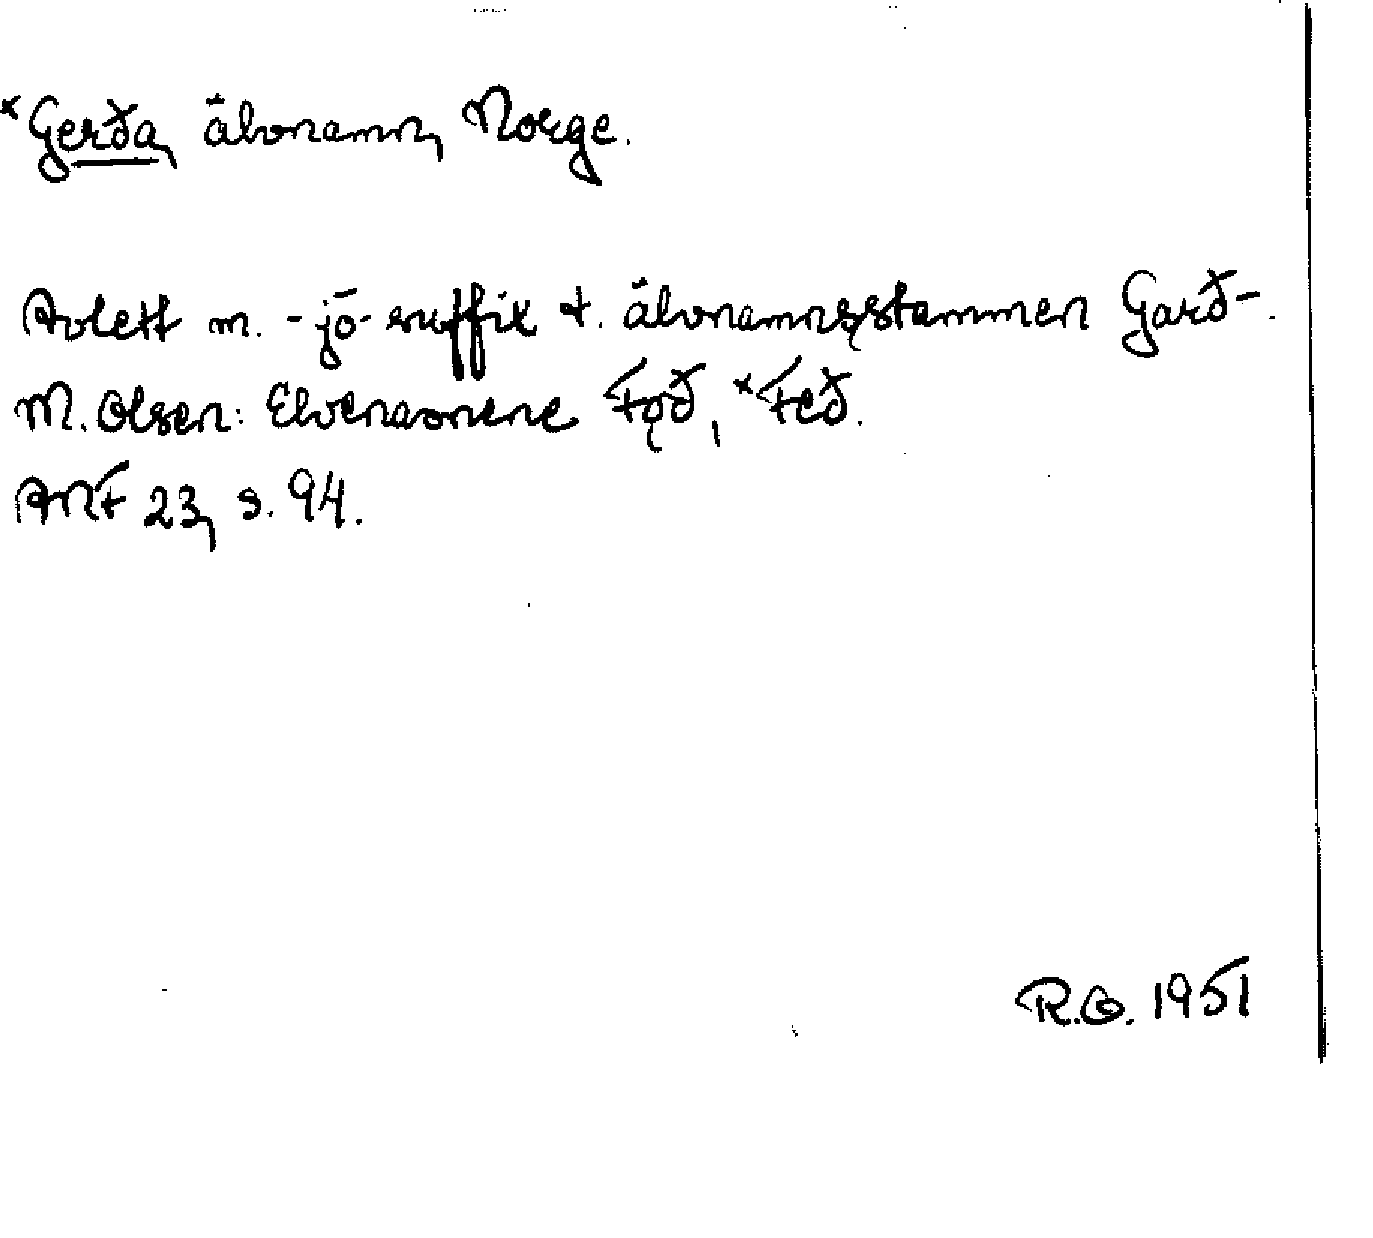 *Gerða, älvnamn, Norge.
Avlett m. -jō- suffix t. älvnamnsstammen Garð-.
M. Olsen: Elvenavnene Fǫð, *Feð.
ANF 23, s. 94.
R.G. 1951